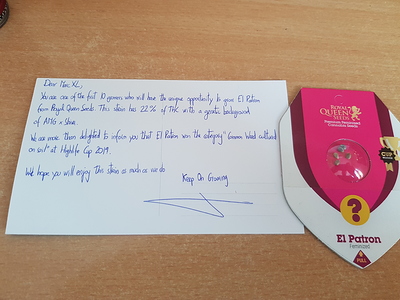 Dear Mrs. XL,
You are one of the first 10 growers who will have the unique opportunity to grow El Patron
from Royal Queen Seeds. This strain has 22% of THC with a genetic background
of AMG x Shiva.
We are more then delighted to inform you that El Patron won the category " Weed cultivated
on soil" at Highlife Cup 2019.
We hope you will enjoy this strain as much as we do
Keep On Growing
ROYAL
QUEEN
SEEDS
CUP
?
El Patron
Feminized